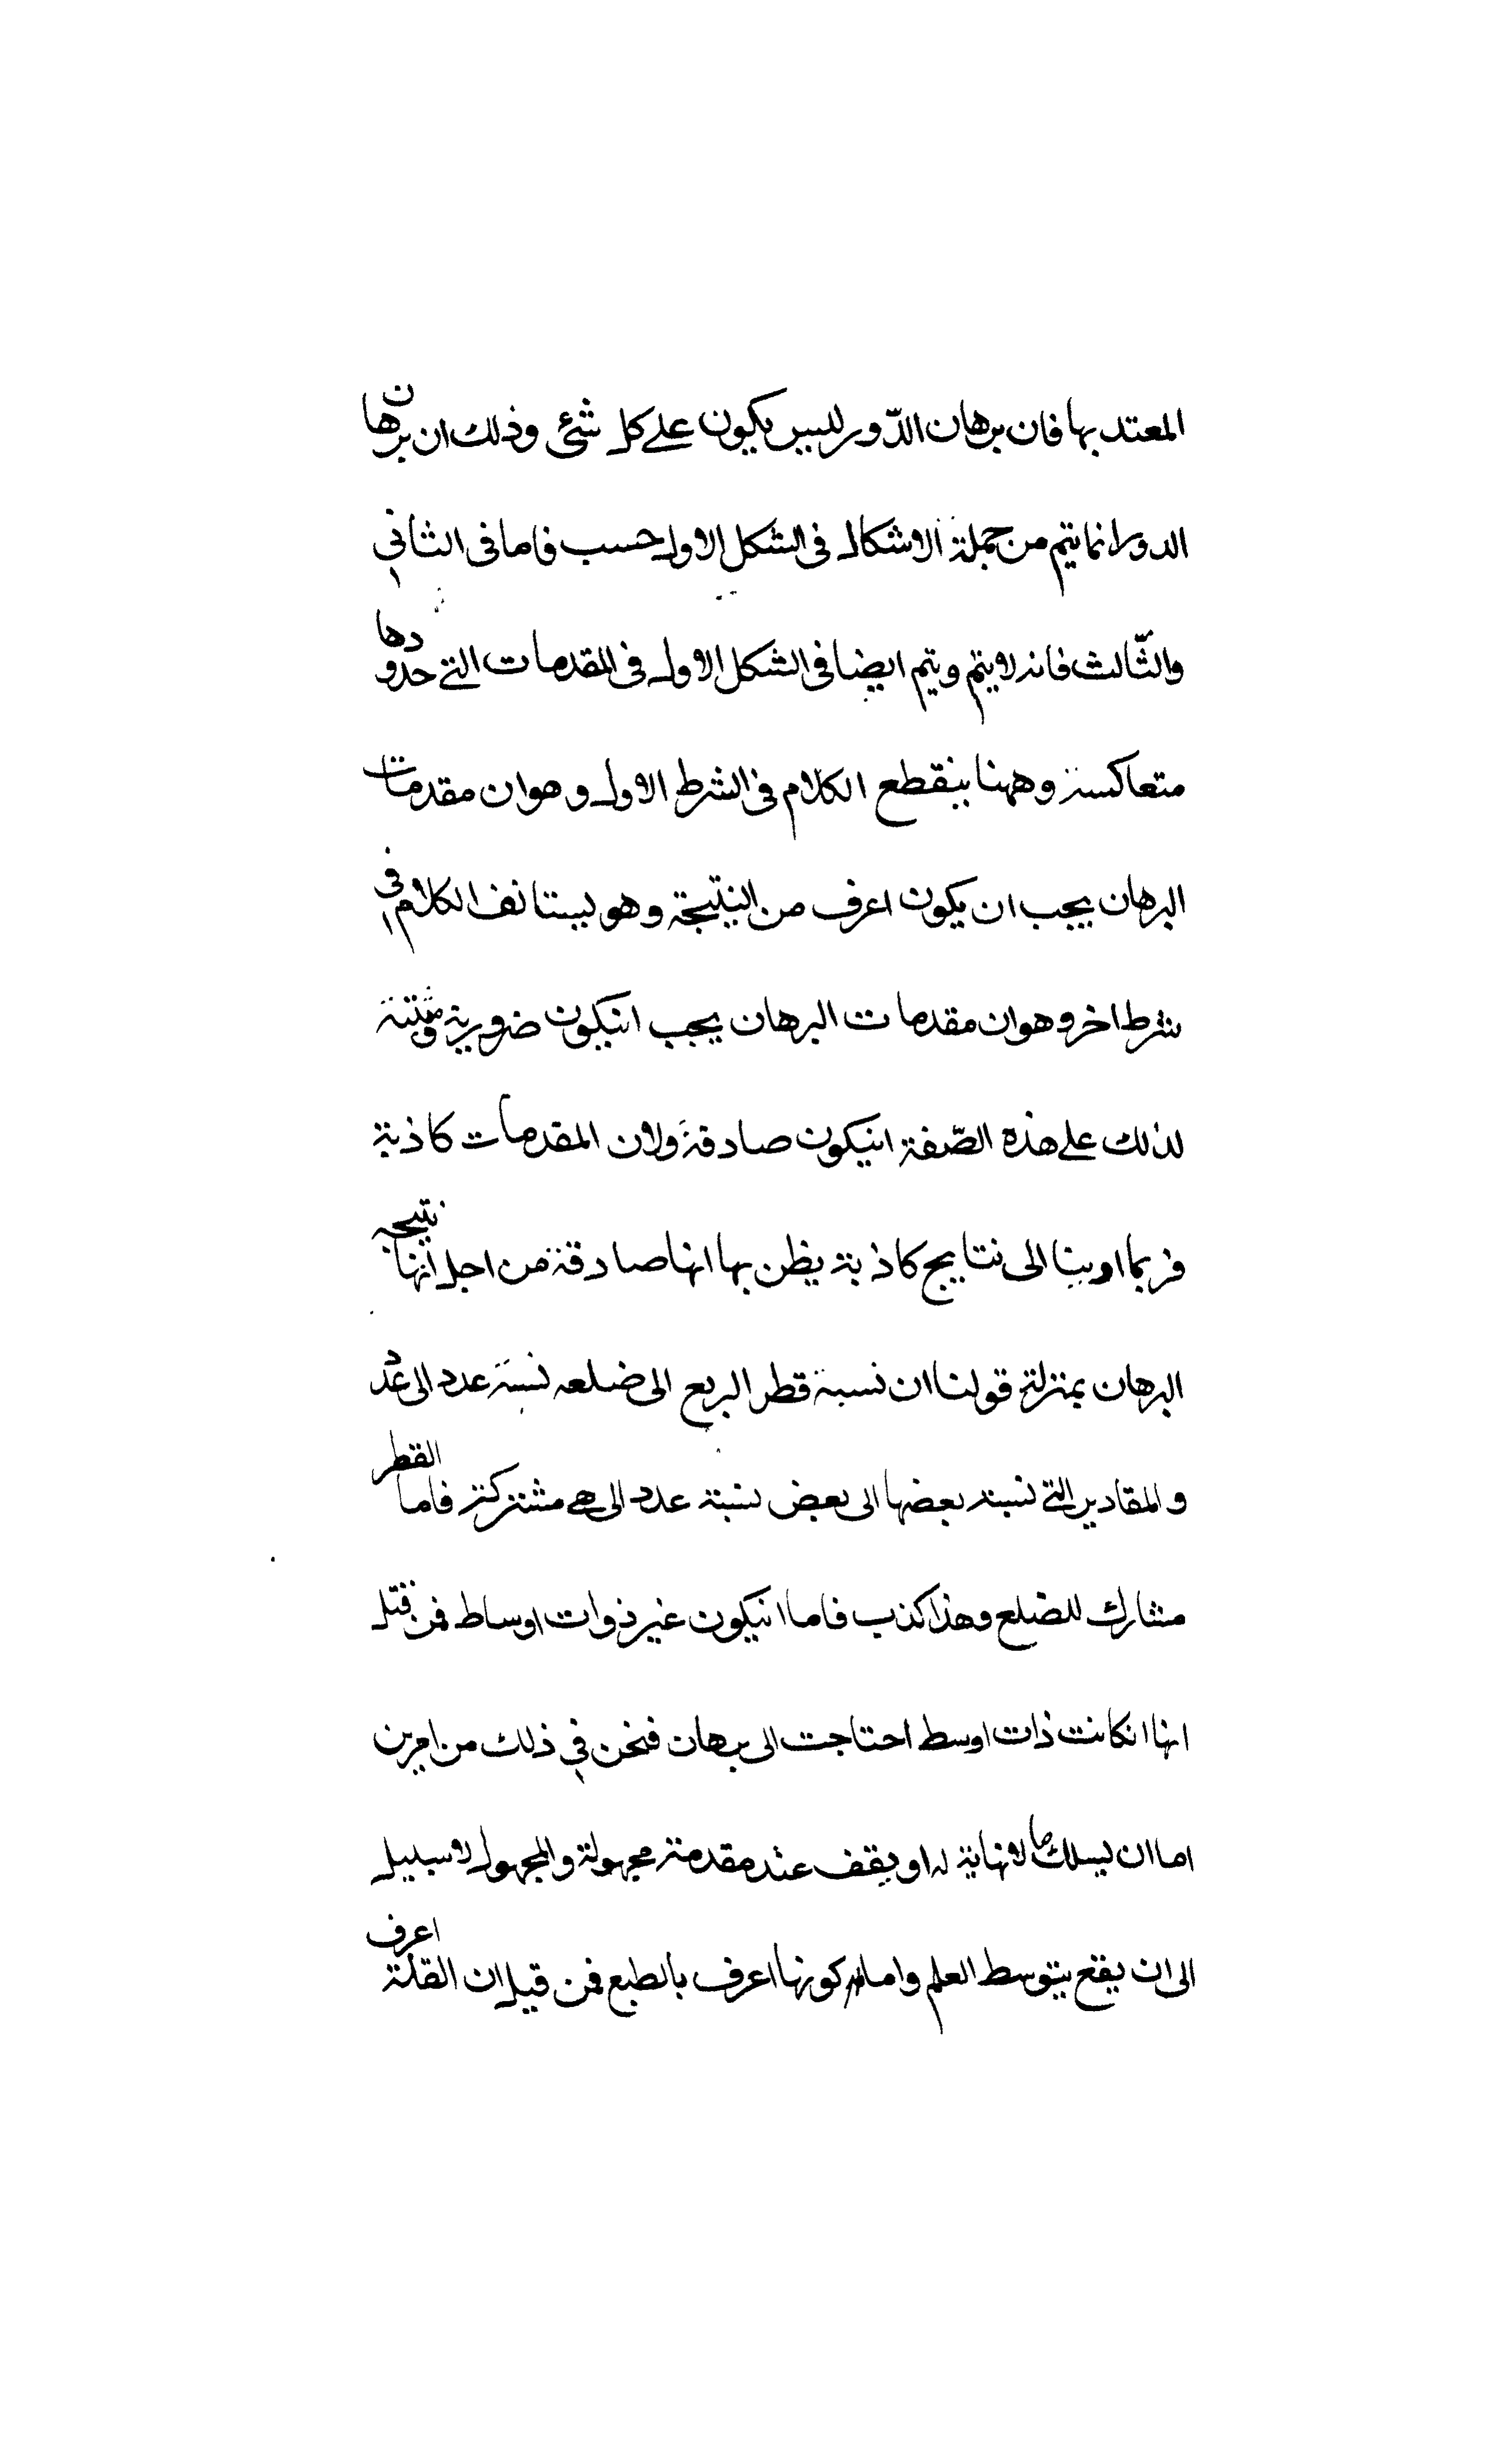 المعتد بها فان برهان الدّور ليس يكون على كل شئ وذلك ان برهان
الدور انما يتم من جملة الاشكال فى الشكل الاول حسب فاما فى الثانى
والثّالث فانه لا يتم ويتم ايضا فى الشكل الاول فى المقدمات التى حدودها
متعاكسة وههنا ينقطع الكلام فى الشرط الاول وهو ان مقدمات
البرهان يجب ان يكون اعرف من النتيجة وهو يستانف الكلام فى
شرط اخر وهو ان مقدمات البرهان يجب انيكون ضرورية
لذلك على هذه الصّفة انيكون صادقة ولان المقدمات كاذبة
فربما الى نتايج كاذبة يظن بها انها صادقة من اجل انها نتيجه
البرهان بمنزلة قولنا ان نسبة قطر البربع الى ضلعه نسبة عدد الى عدد
والمقادير التى نسبة بعضها الى بعض نسبة عدد الى هى مشتركة فاما القطر
مشارك للضلع وهذا كذب فاما انيكون غير ذوات اوساط فمن قبل
انها انكانت ذات اوسط احتاجت الى برهان فنحن فى ذلك من امرين
اما ان يسلك ما لا نهاية له او يقف عند مقدمة مجهولة والمجهول لا سبيل
الى ان يقع بتوسط العلم واما كونها اعرف بالطبع فمن قبل ان القلة اعرف